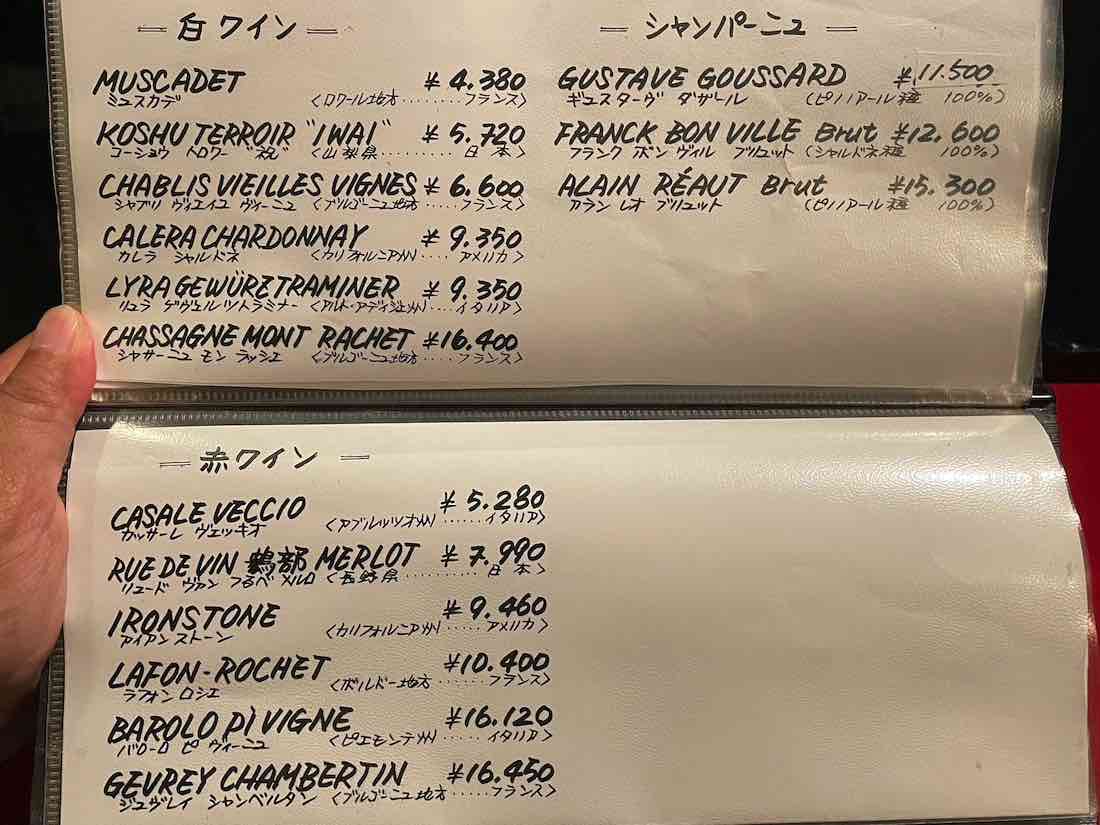 白ワイン
MUSCADET ¥4.380
ミュスカデ 〈ロワール地方........フランス〉
KOSHU TERROIR "IWAI" ¥5.720
コーシュウ テロワー "祝" 〈山梨県.........日本〉
CHABLIS VIEILLES VIGNES ¥6.600
シャブリ ヴィエイユ ヴィーニュ 〈ブルゴーニュ地方....フランス〉
CALERA CHARDONNAY ¥9.350
カレラ シャルドネ 〈カリフォルニア州....アメリカ〉
LYRA GEWÜRZTRAMINER ¥9.350
リュラ ゲヴェルツトラミナー 〈アルト・アディジェ州..イタリア〉
CHASSAGNE MONT RACHET ¥16.400
シャサーニュ モン ラッシェ 〈ブルゴーニュ地方....フランス〉
シャンパーニュ
GUSTAVE GOUSSARD ¥11.500
ギュスターヴ グザール (ピノノアール種 100%)
FRANCK BON VILLE Brut ¥12.600
フランク ボン ヴィル ブリュット (シャルドネ種 100%)
ALAIN RÉAUT Brut ¥15.300
アラン レオ ブリュット (ピノノアール種 100%)
赤ワイン
CASALE VECCIO ¥5.280
カッサーレ ヴェッキオ 〈アブルッツオ州.....イタリア〉
RUE DE VIN 鶴部 MERLOT ¥7.990
リュード ヴァン つるべ メルロ 〈長野県.........日本〉
IRONSTONE ¥9.460
アイアンストーン 〈カリフォルニア州.....アメリカ〉
LAFON-ROCHET ¥10.400
ラフォン ロシェ 〈ボルドー地方.......フランス〉
BAROLO Pì VIGNE ¥16.120
バローロ ピ ヴィーニュ 〈ピエモンテ州......イタリア〉
GEVREY CHAMBERTIN ¥16.450
ジュヴレイ シャンベルタン 〈ブルゴーニュ地方.....フランス〉